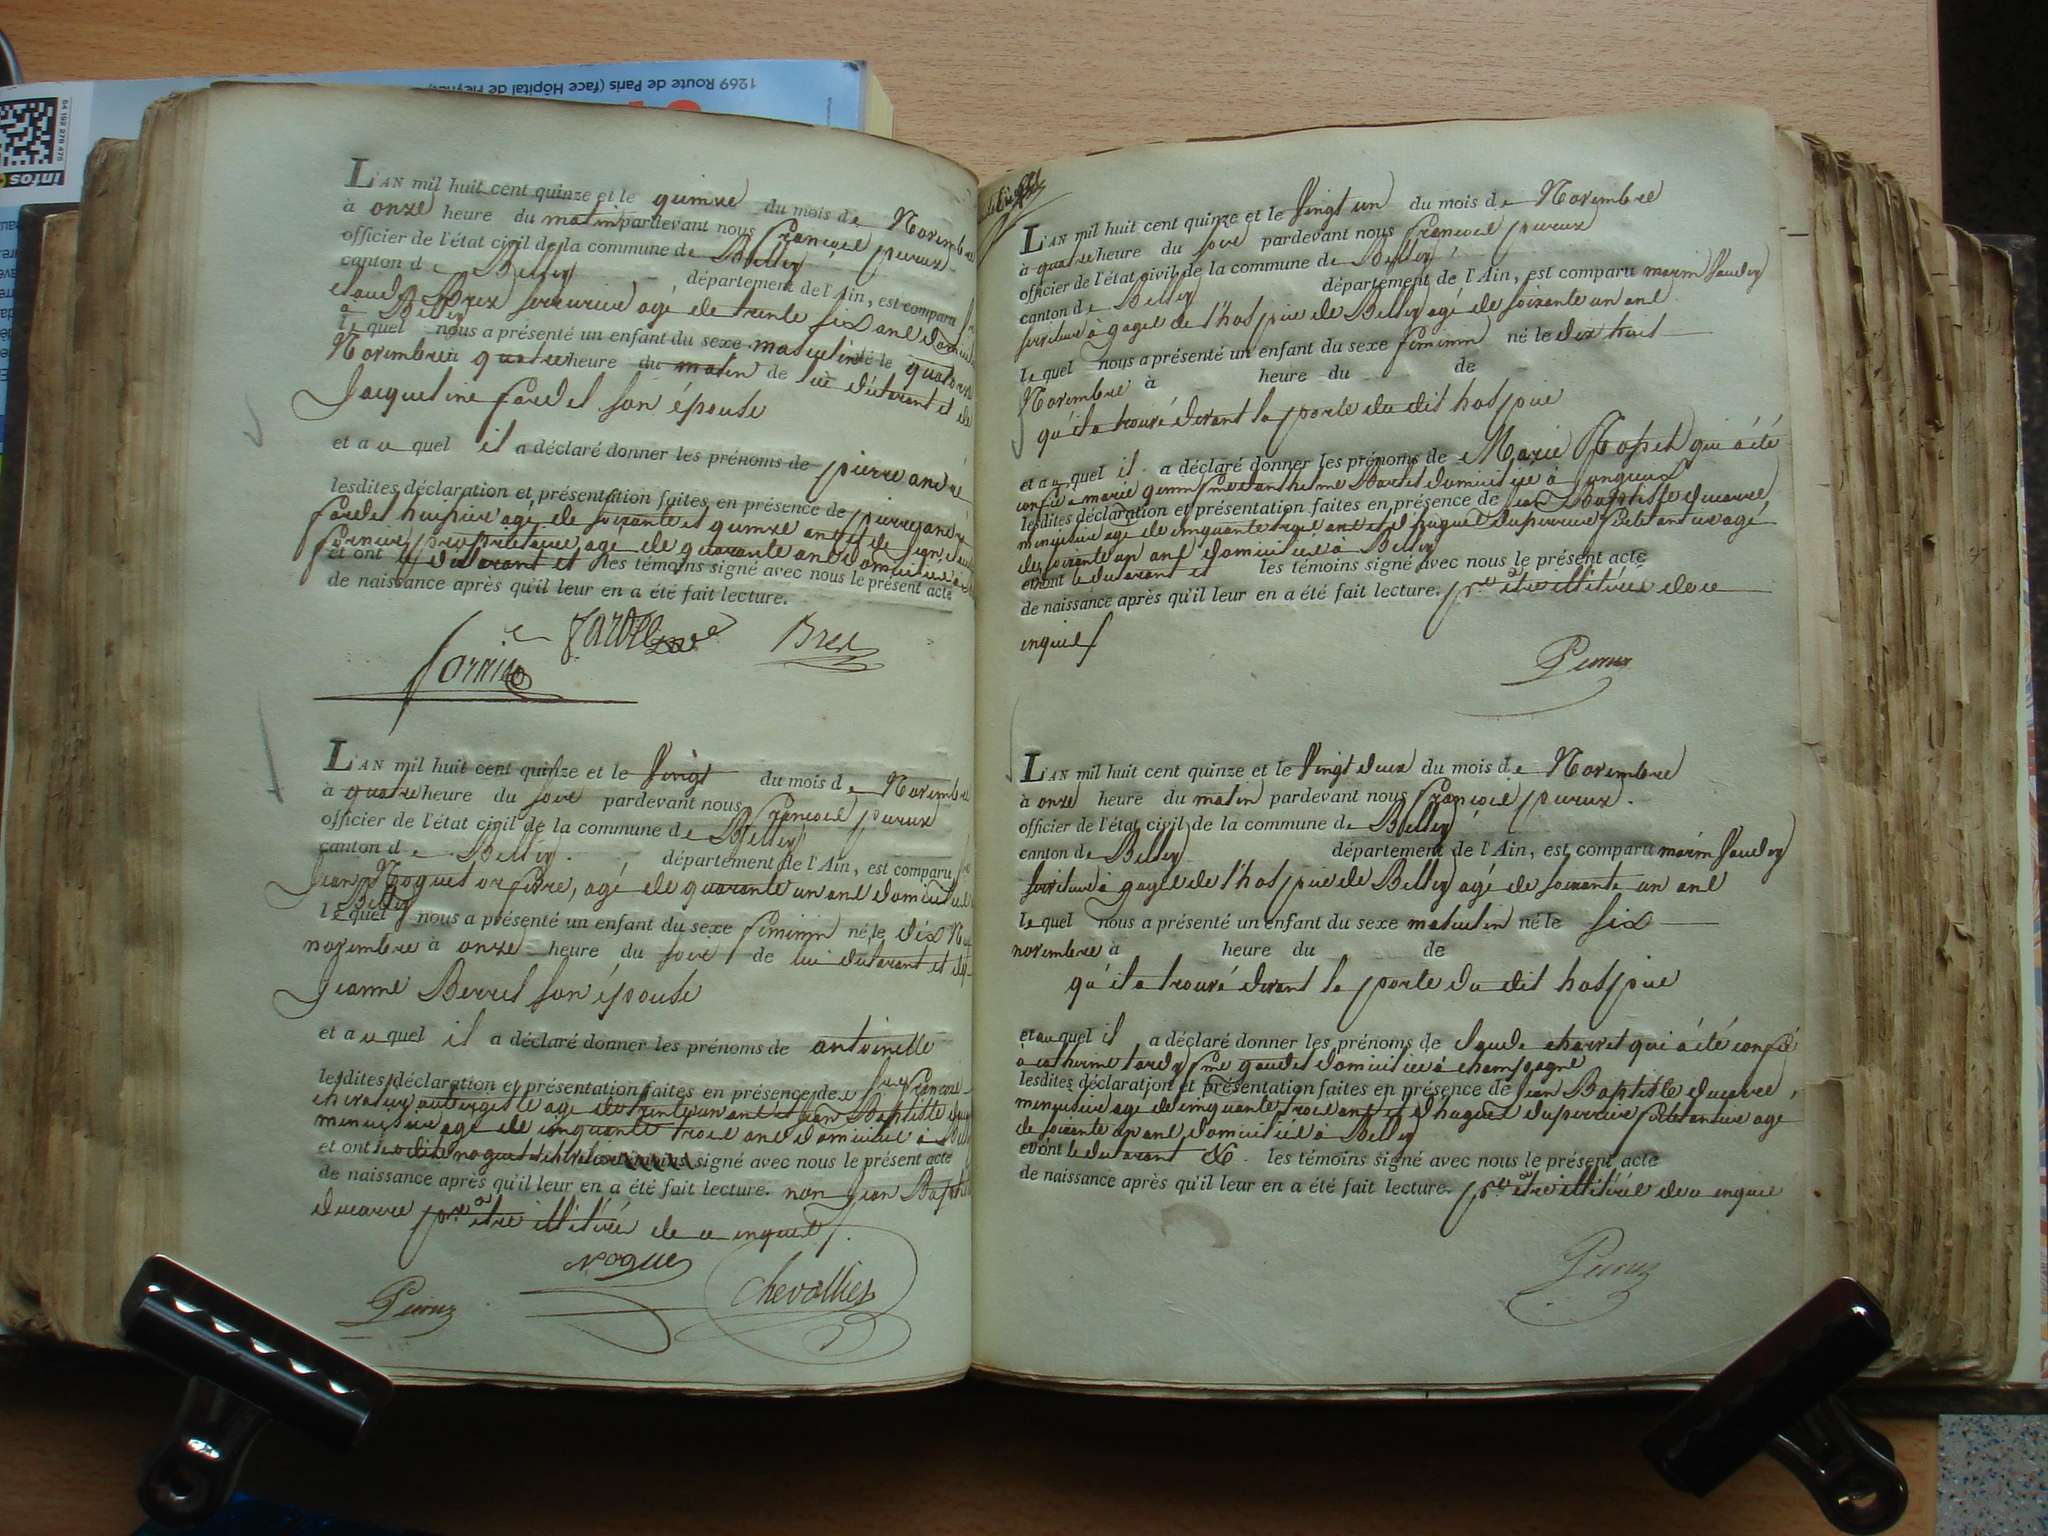 1269 Route de Paris (face Hôpital de
infos
L'AN mil huit cent quinze et le quinze du mois de Novembre
à onze heure du matin pardevant nous françois peroux
officier de l'état civil de la commune de Belley
canton de Belley département de l'Ain, est comparu
Claude Brex serrurier agé de trente six ans domicilié
à Belley
lequel nous a présenté un enfant du sexe masculin né le quatorze
Novembre à quatre heure du matin de lui déclarant et de
Jacqueline fardel son épouse
et auquel il a déclaré donner les prénoms de pierre andré
lesdites déclaration et présentation faites en présence de pierre andré
fardel huissier agé de soixante et quinze ans et de
fornier propriétaire agé de quarante ans domiciliés à
et ont le déclarant et les témoins signé avec nous le présent acte
de naissance après qu'il leur en a été fait lecture.
fardel Brex
fornier
L'AN mil huit cent quinze et le vingt du mois de Novembre
à quatre heure du soir pardevant nous françois peroux
officier de l'état civil de la commune de Belley
canton de Belley département de l'Ain, est comparu
Jean Noguet orfèvre, agé de quarante un ans domicilié
Belley
lequel nous a présenté un enfant du sexe féminin né le dix Neuf
novembre à onze heure du soir de lui déclarant et de
Jeanne Berret son épouse
et auquel il a déclaré donner les prénoms de antoinette
lesdites déclaration et présentation faites en présence de françois
chevalier aubergiste agé de trente un ans et Jean Baptiste ducarre
menuisier agé de cinquante trois ans domicilié à Belley
et ont signé avec nous le présent acte
de naissance après qu'il leur en a été fait lecture. non Jean Baptiste
ducarre pour être illitéré de ce enquis
Noguet
Peroux Chevallier
L'AN mil huit cent quinze et le vingt un du mois de Novembre
à quatre heure du soir pardevant nous françois peroux
officier de l'état civil de la commune de Belley
canton de Belley département de l'Ain, est comparu marin
serviteur à gages de l'hospice de Belley agé de soixante un ans
lequel nous a présenté un enfant du sexe féminin né le dix huit
Novembre à heure du de
qu'il a trouvé devant la porte du dit hospice
et auquel il a déclaré donner les prénoms de Marie qui a été
confié a marie domicilié à
lesdites déclaration et présentation faites en présence de Jean Baptiste ducarre
menuisier agé de cinquante trois ans et d'hugues duperrier agé
de soixante un ans domiciliés à Belley
et ont le déclarant et les témoins signé avec nous le présent acte
de naissance après qu'il leur en a été fait lecture. pour être illitérés de ce
enquis
Peroux
L'AN mil huit cent quinze et le vingt deux du mois de Novembre
à onze heure du matin pardevant nous françois peroux
officier de l'état civil de la commune de Belley
canton de Belley département de l'Ain, est comparu marin
serviteur à gages de l'hospice de Belley agé de soixante un ans
lequel nous a présenté un enfant du sexe masculin né le six
novembre à heure du de
qu'il a trouvé devant la porte du dit hospice
et auquel il a déclaré donner les prénoms de Claude charret qui a été confié
à catherine tardy domiciliée à champagne
lesdites déclaration et présentation faites en présence de Jean Baptiste ducarre,
menuisier agé de cinquante trois ans et d'hugues duperrier agé
de soixante un ans domiciliés à Belley
et ont le déclarant & les témoins signé avec nous le présent acte
de naissance après qu'il leur en a été fait lecture. pour être illitérés de ce enquis
Peroux